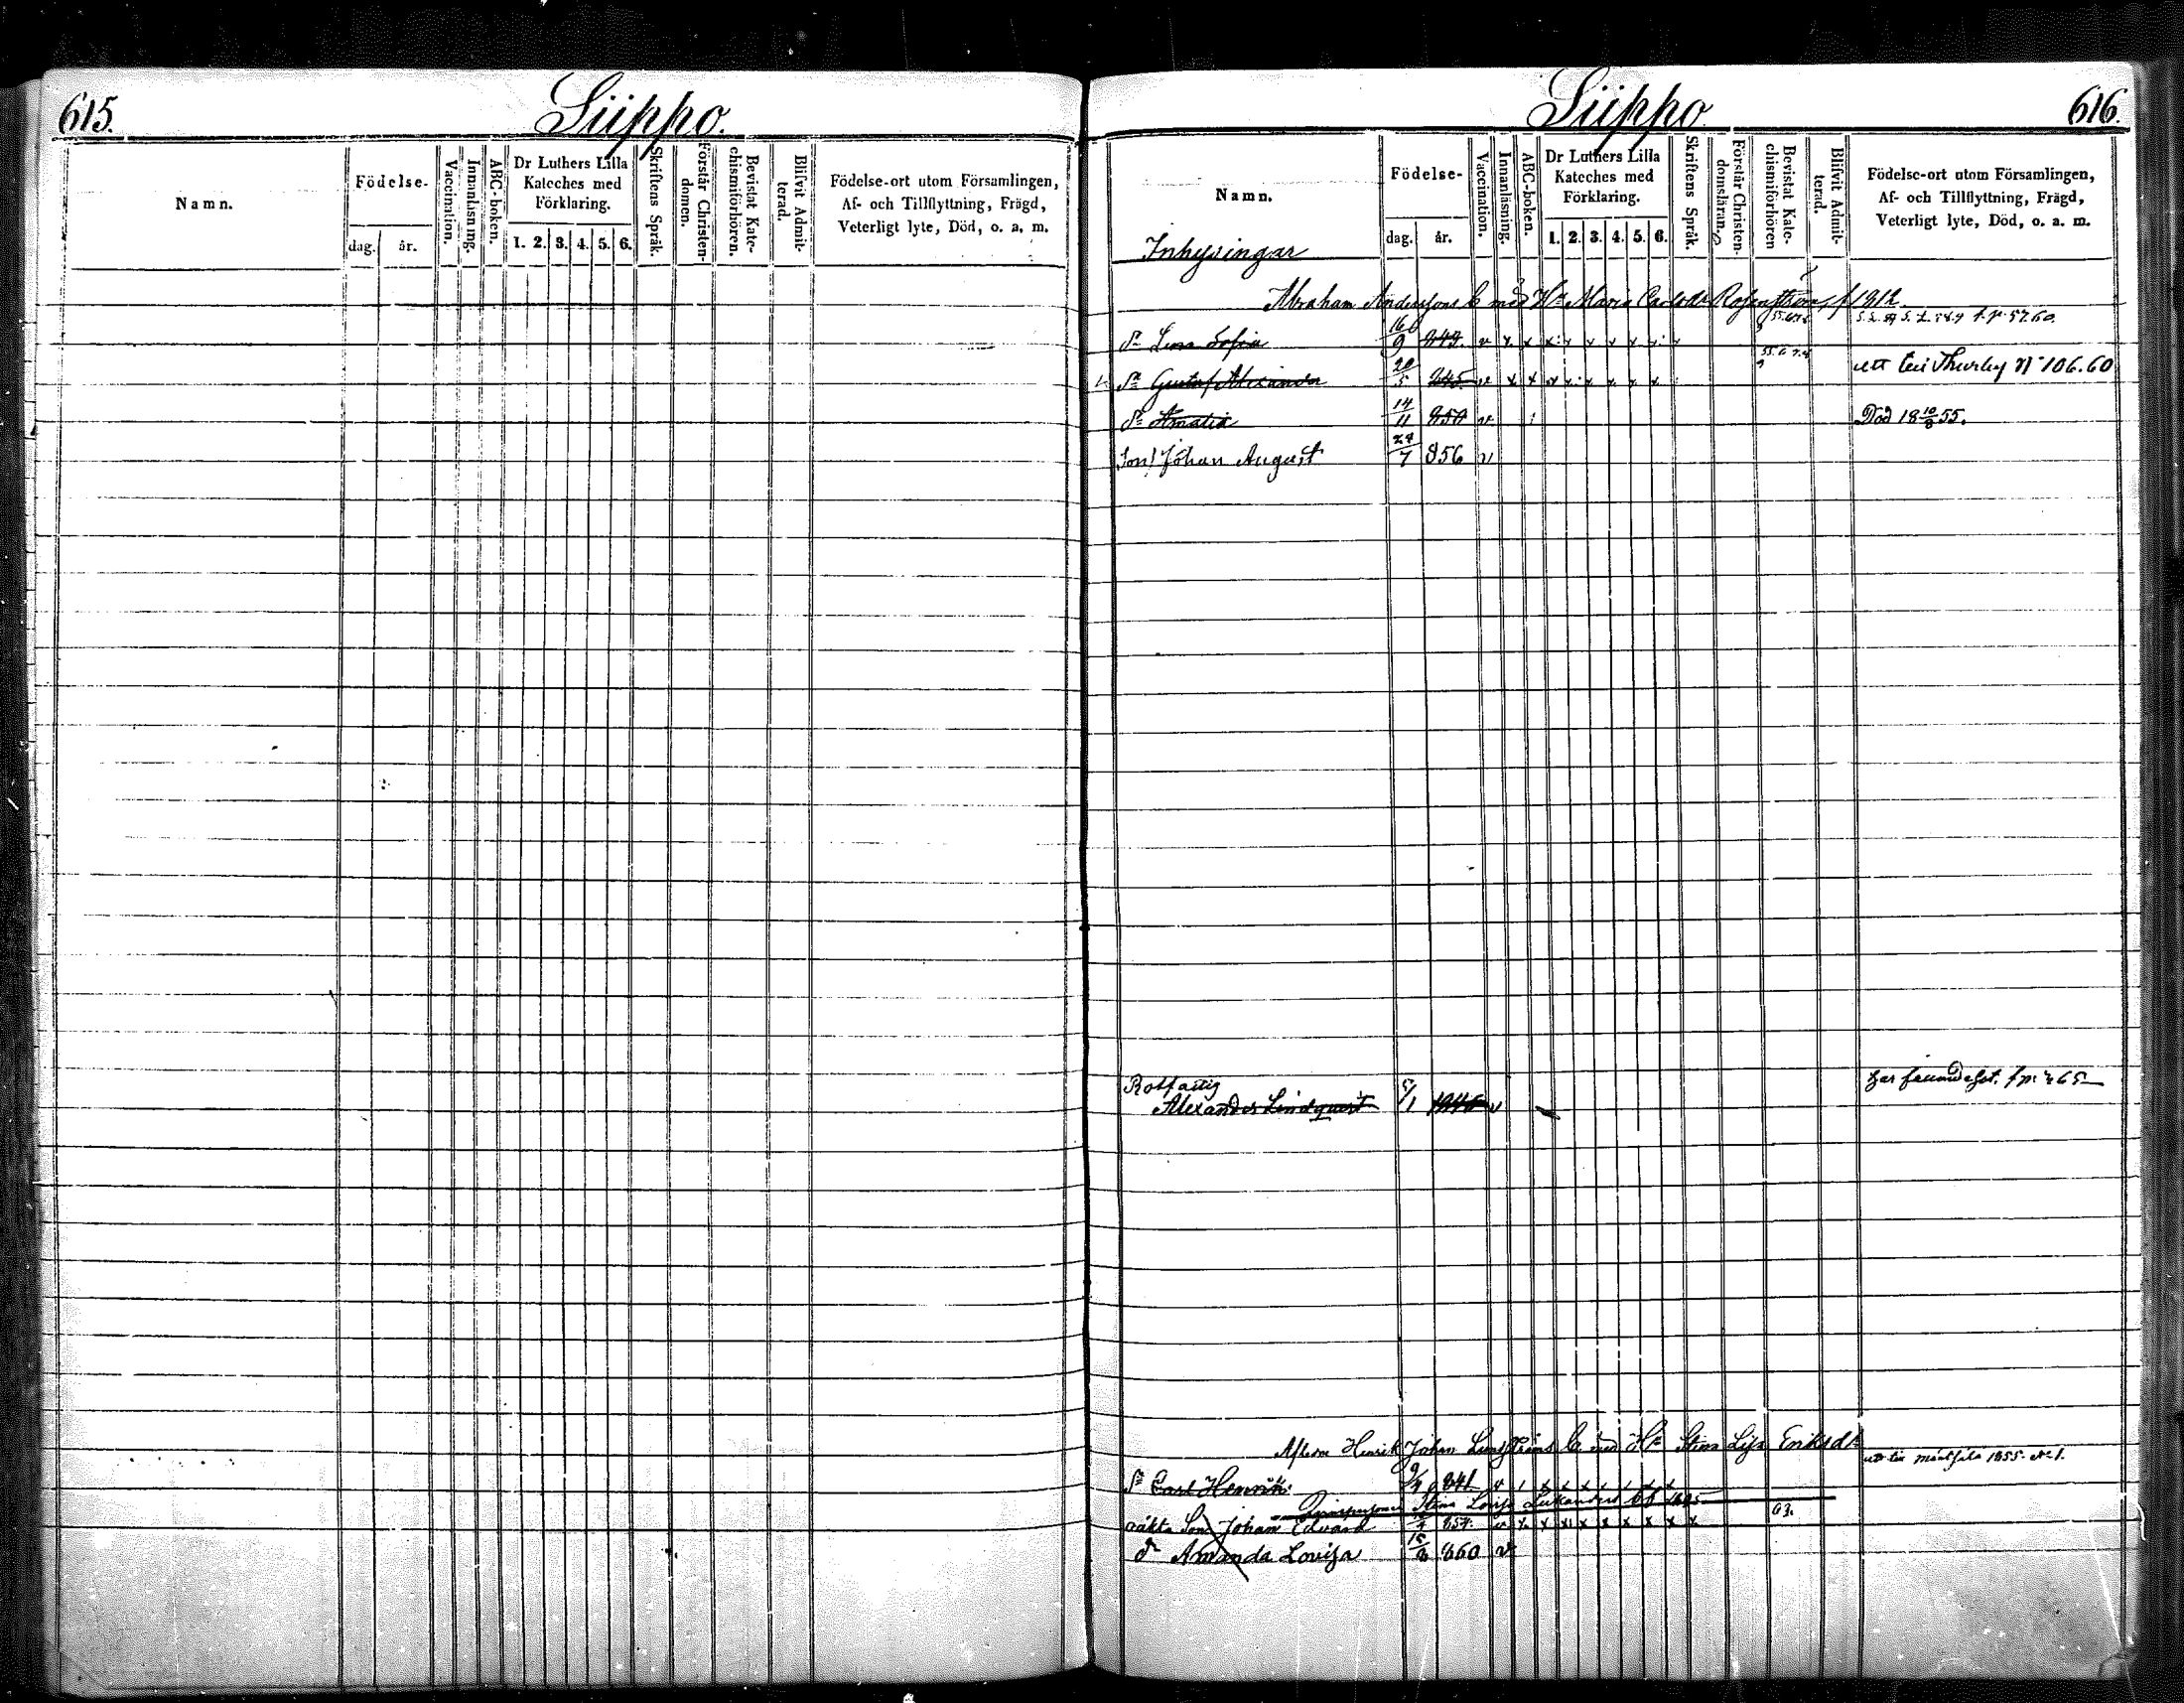 615.
Siippo.
Namn.
Födelse-
dag. år.
Vaccination.
Innanläsning.
ABC-boken.
Dr Luthers Lilla
Kateches med
Förklaring.
1. 2. 3. 4. 5. 6.
Skriftens Språk.
Förstår Christen-
domen.
Bevistat Kate-
chismiförhören.
Blifvit Admit-
terad.
Födelse-ort utom Församlingen,
Af- och Tillflyttning, Frägd,
Veterligt lyte, Död, o. a. m.
Siippo
616.
Namn.
Födelse-
dag. år.
Vaccination.
Innanläsning.
ABC-boken.
Dr Luthers Lilla
Kateches med
Förklaring.
1. 2. 3. 4. 5. 6.
Skriftens Språk.
Förstår Christen-
domsläran.
Bevistat Kate-
chismiförhören
Blifvit Admit-
terad.
Födelse-ort utom Församlingen,
Af- och Tillflyttning, Frägd,
Veterligt lyte, Död, o. a. m.
Inhysingar
Abraham Anderssons b med Hu Maria Carlsdr f 1812.
Dr Lena Sofia 16/9 v x x x x x x x x
Sn Gustaf Alexander 20/5 845 v x x x x x x x x N 106.60
Dr Amalia 14/11 850 v Död 18 10/8 55.
Son Johan August 27/7 856 v
Alexander Lindquist v
Henrik Johan b med Hu Stina Lisa Eriksdr
Sn Carl Henrik 841 v 1855
Stina Lovisa
oäkta Son Johan Edvard 857 v x x x x x x x x x 63.
Dr Amanda Lovisa 860 v